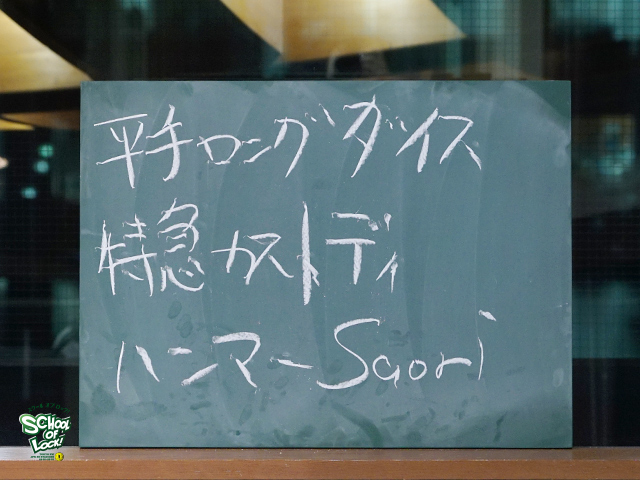 平手ロングダイス
特急カストディ
ハンマーSaori
SCHOOL
OF
LOCK!